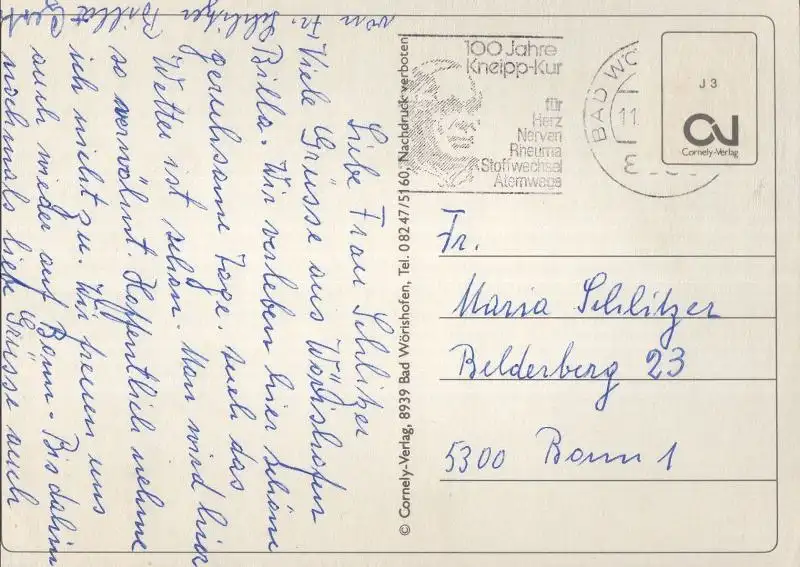 Liebe Frau Schlitzer
Viele Grüsse aus Wörishofen
Billa. Wir verleben hier schöne
geruhsame Tage. Auch das
Wetter ist schön. Man wird hier
so verwöhnt. Hoffentlich nehme
ich nicht zu. Wir freuen uns
auch wieder auf Bonn. Bis dahin
nochmals liebe Grüsse auch
von Fr. Schlitzer
© Cornely-Verlag, 8939 Bad Wörishofen, Tel. 08247/5160, Nachdruck verboten
100 Jahre
Kneipp-Kur
für
Herz
Nerven
Rheuma
Stoffwechsel
Atemwege
BAD WÖ
11.
J 3
Cornely-Verlag
Fr.
Maria Schlitzer
Belderberg 23
5300 Bonn 1